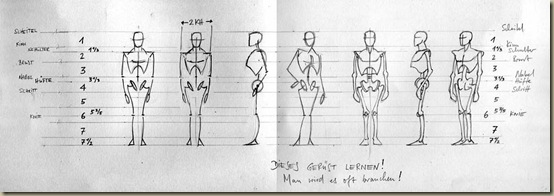 SCHEITEL
KINN 1
SCHULTER
2
BRUST
3
NABEL
HÜFTE 3½
4
SCHRITT
5
KNIE 6
7
7½
2 KH
Scheitel
1
Kinn
Schulter
2 Brust
3
Nabel
3½ Hüfte
4 Schritt
5
6 KNIE
7
7½
DIESES GERÜST LERNEN!
Man wird es oft brauchen!